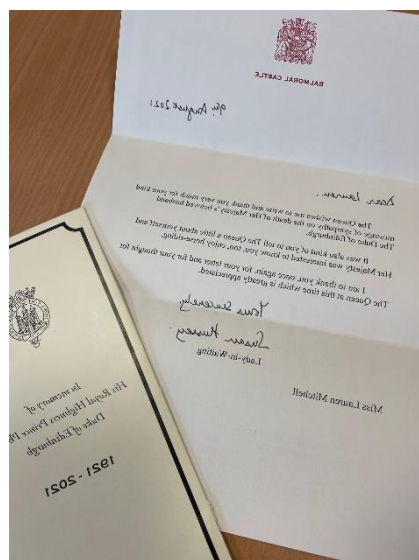 BALMORAL CASTLE
9th August 2021
Dear Lauren,
The Queen wishes me to write and thank you very much for your kind
message of sympathy on the death of Her Majesty's beloved husband
The Duke of Edinburgh.
It was also kind of you to tell The Queen a little about yourself and
Her Majesty was interested to know you, too, enjoy horse-riding.
I am to thank you, once again, for your letter and for your thought for
The Queen at this time which is greatly appreciated.
Yours sincerely
Susan Hussey.
Lady-in-Waiting
Miss Lauren Mitchell
In memory of
His Royal Highness Prince Ph
Duke of Edinburgh
1921 - 2021